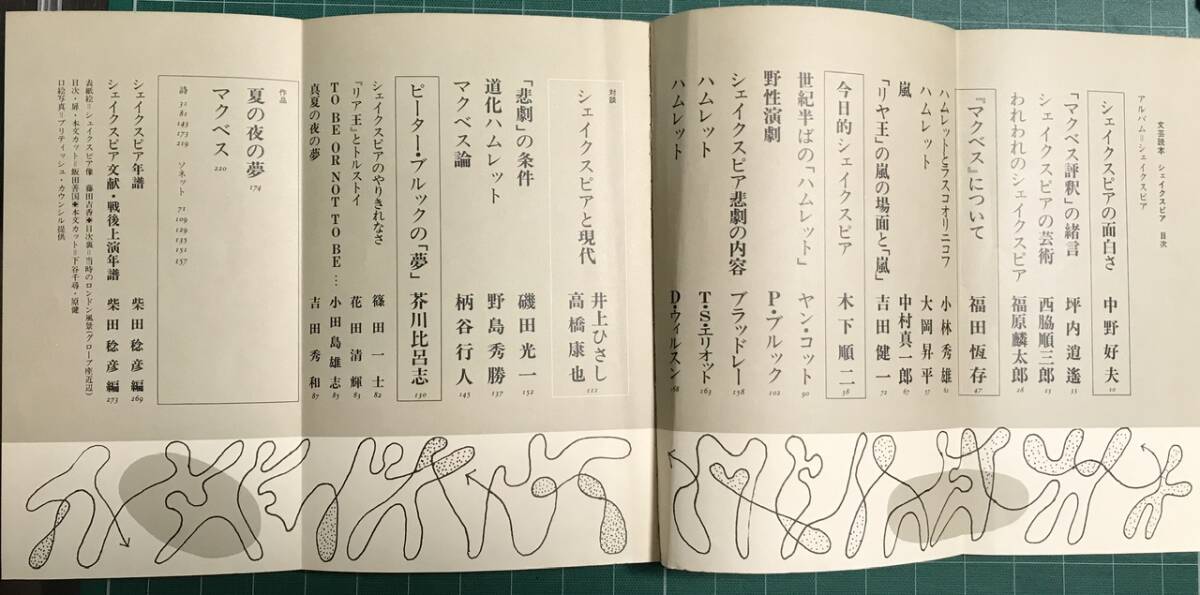 文芸読本　シェイクスピア　目次
アルバム=シェイクスピア
シェイクスピアの面白さ　中野好夫　10
「マクベス評釈」の緒言　坪内逍遙　33
シェイクスピアの芸術　西脇順三郎　13
われわれのシェイクスピア　福原麟太郎　26
『マクベス』について　福田恆存　47
ハムレットとラスコオリニコフ　小林秀雄　61
ハムレット　大岡昇平　57
嵐　中村真一郎　67
「リヤ王」の嵐の場面と「嵐」　吉田健一　72
今日的シェイクスピア　木下順二　38
世紀半ばの「ハムレット」　ヤン・コット　90
野性演劇　P・ブルック　102
シェイクスピア悲劇の内容　ブラッドレー　158
ハムレット　T・S・エリオット　163
ハムレット　D・ウィルスン　168
対談
シェイクスピアと現代　井上ひさし　高橋康也　111
「悲劇」の条件　磯田光一　152
道化ハムレット　野島秀勝　137
マクベス論　柄谷行人　145
ピーター・ブルックの「夢」　芥川比呂志　130
シェイクスピアのやりきれなさ　篠田一士　82
『リア王』とトルストイ　花田清輝　83
TO BE OR NOT TO BE…　小田島雄志　85
真夏の夜の夢　吉田秀和　87
作品
夏の夜の夢　174
マクベス　220
詩　32　81　143　173　219　ソネット　71　109　129　135　151　157
シェイクスピア年譜　柴田稔彦編　269
シェイクスピア文献・戦後上演年譜　柴田稔彦編　273
表紙絵=シェイクスピア像　藤田吉香◆目次裏=当時のロンドン風景(グローブ座近辺)
目次・扉・本文カット=飯田善国◆本文カット=下谷千尋・原健
口絵写真=ブリティッシュ・カウンシル提供